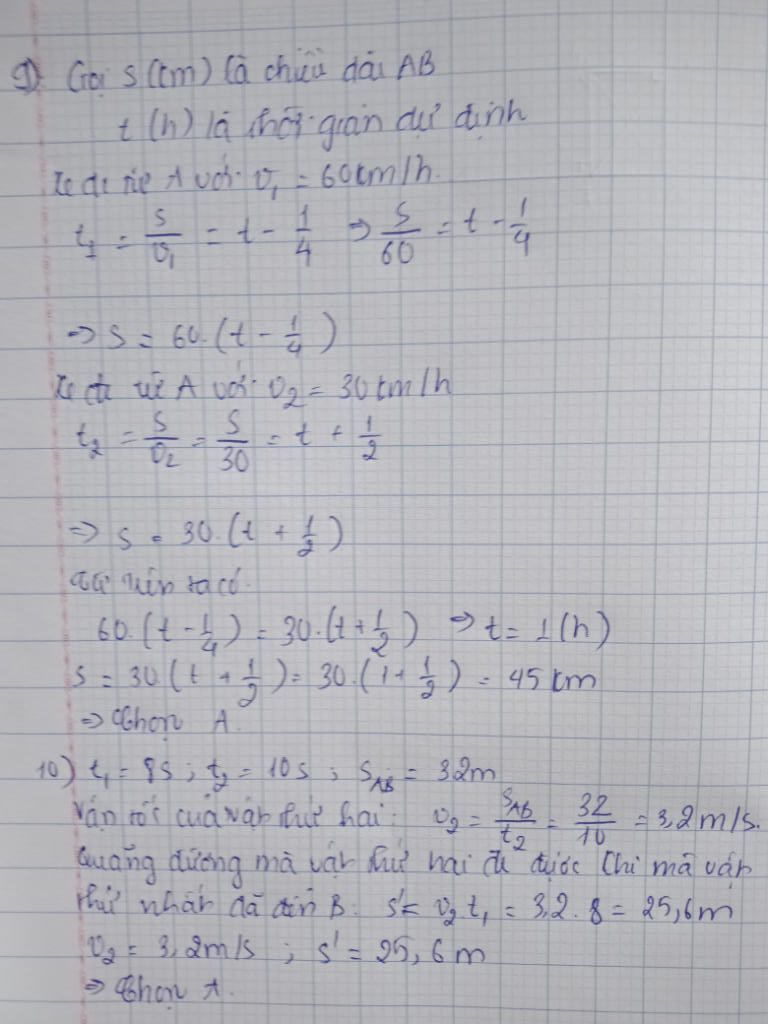 9) Gọi s (km) là chiều dài AB
t (h) là thời gian dự định
Xe đi từ A với v₁ = 60km/h.
t₁ = s/v₁ = t - 1/4 ⇒ s/60 = t - 1/4
⇒ s = 60.(t - 1/4)
Xe đi từ A với v₂ = 30km/h
t₂ = s/v₂ = s/30 = t + 1/2
⇒ s = 30.(t + 1/2)
Từ trên ta có.
60.(t - 1/4) = 30.(t + 1/2) ⇒ t = 1(h)
s = 30(t + 1/2) = 30.(1 + 1/2) = 45km
⇒ Chọn A.
10) t₁ = 8s ; t₂ = 10s ; s_AB = 32m
Vận tốc của vật thứ hai: v₂ = s_AB/t₂ = 32/10 = 3,2m/s.
Quãng đường mà vật thứ hai đi được khi mà vật
thứ nhất đã đến B: s' = v₂t₁ = 3,2.8 = 25,6m
v₂ = 3,2m/s ; s' = 25,6m
⇒ Chọn A.